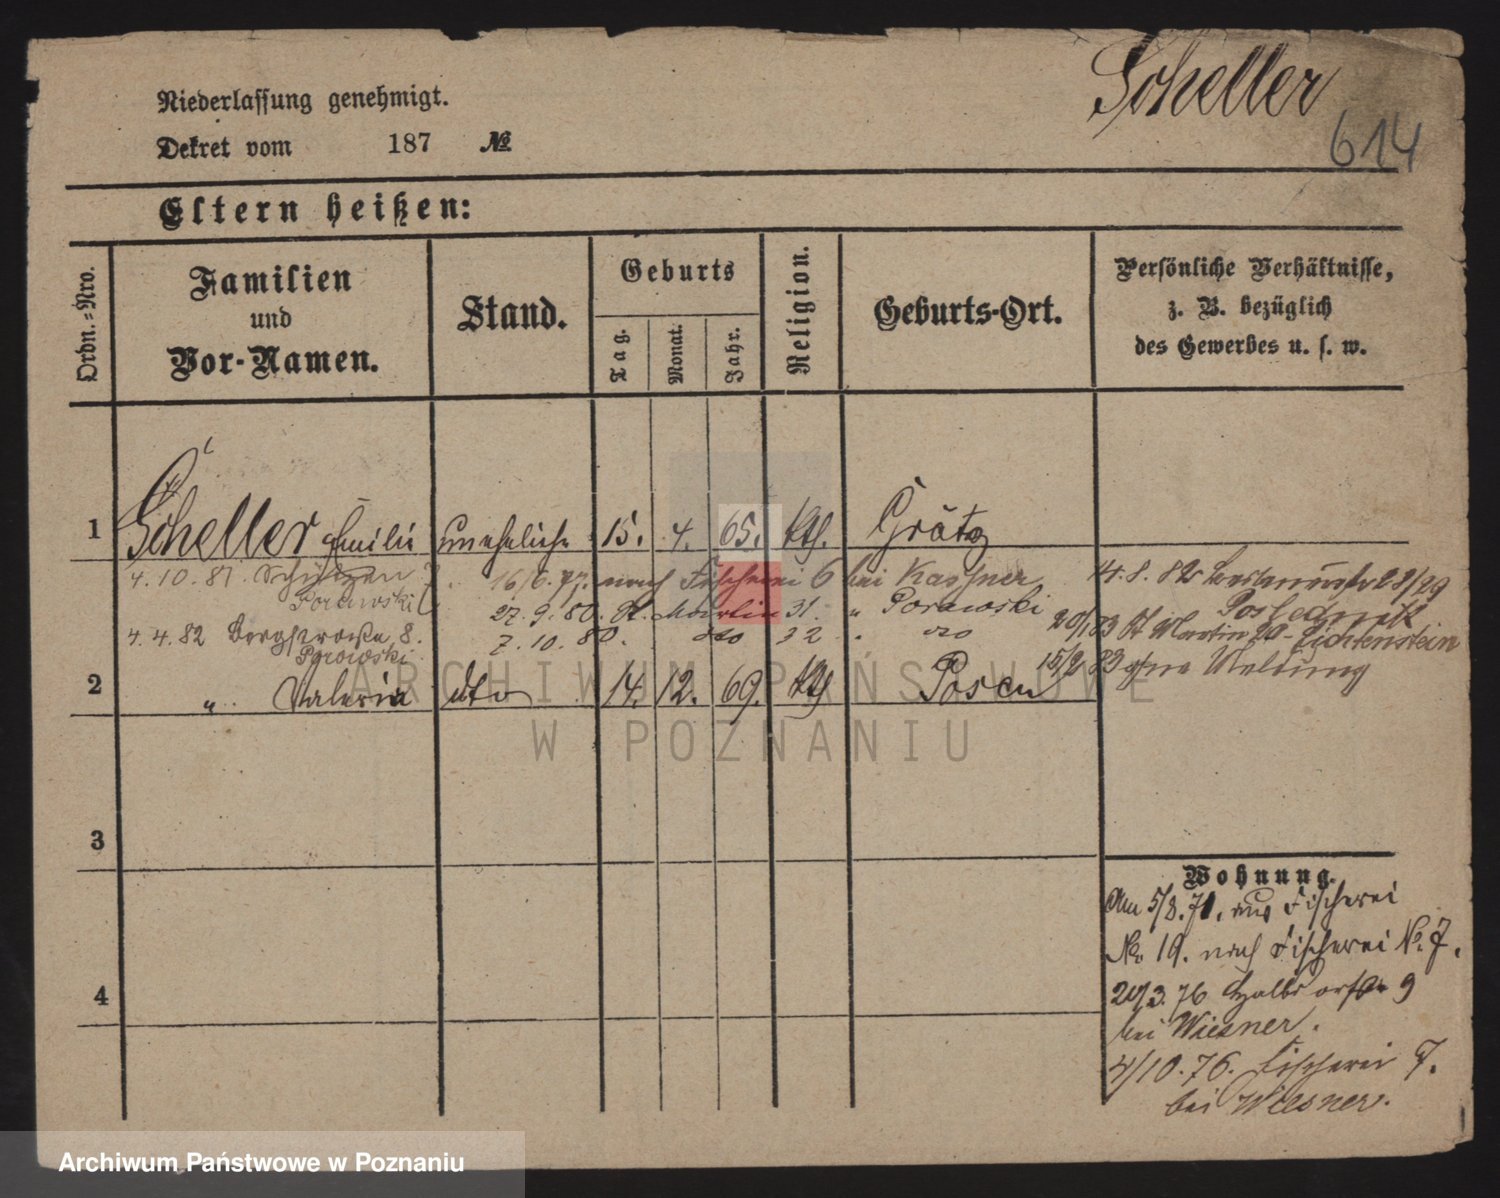 Scheller
614
Niederlassung genehmigt.
Dekret vom 187 №
Eltern heißen:
Ordn.-Nro.
Familien
und
Vor-Namen.
Stand.
Geburts
Tag.
Monat.
Jahr.
Religion.
Geburts-Ort.
Persönliche Verhältnisse,
z. B. bezüglich
des Gewerbes u. s. w.
1 Scheller Emilie uneheliche 15. 4. 65. kth. Grätz
4.10.81. Schützen 7
Porawski
16/6. 77. nach Fischerei 6 bei Kassner
27. 9. 80. St. Martin 31. " Porawski
7. 10. 80. dto 32 " dto
4.4.82 Bergstraße 8.
Porawski
14. 8. 82 28/29
20/1 83 St Martin 20 - Lichtenstein
15/2 83 ohne Meldung
2 " Valeria dto 14. 12. 69. kth Posen
3
4
Wohnung.
Am 5/8. 71. aus Fischerei
No. 19. nach Fischerei No. 7.
20/3. 76 Halbdorfstr 9
bei Wiesner.
4/10. 76. Fischerei 7.
bei Wiesner.
ARCHIWUM PAŃSTWOWE
W POZNANIU
Archiwum Państwowe w Poznaniu